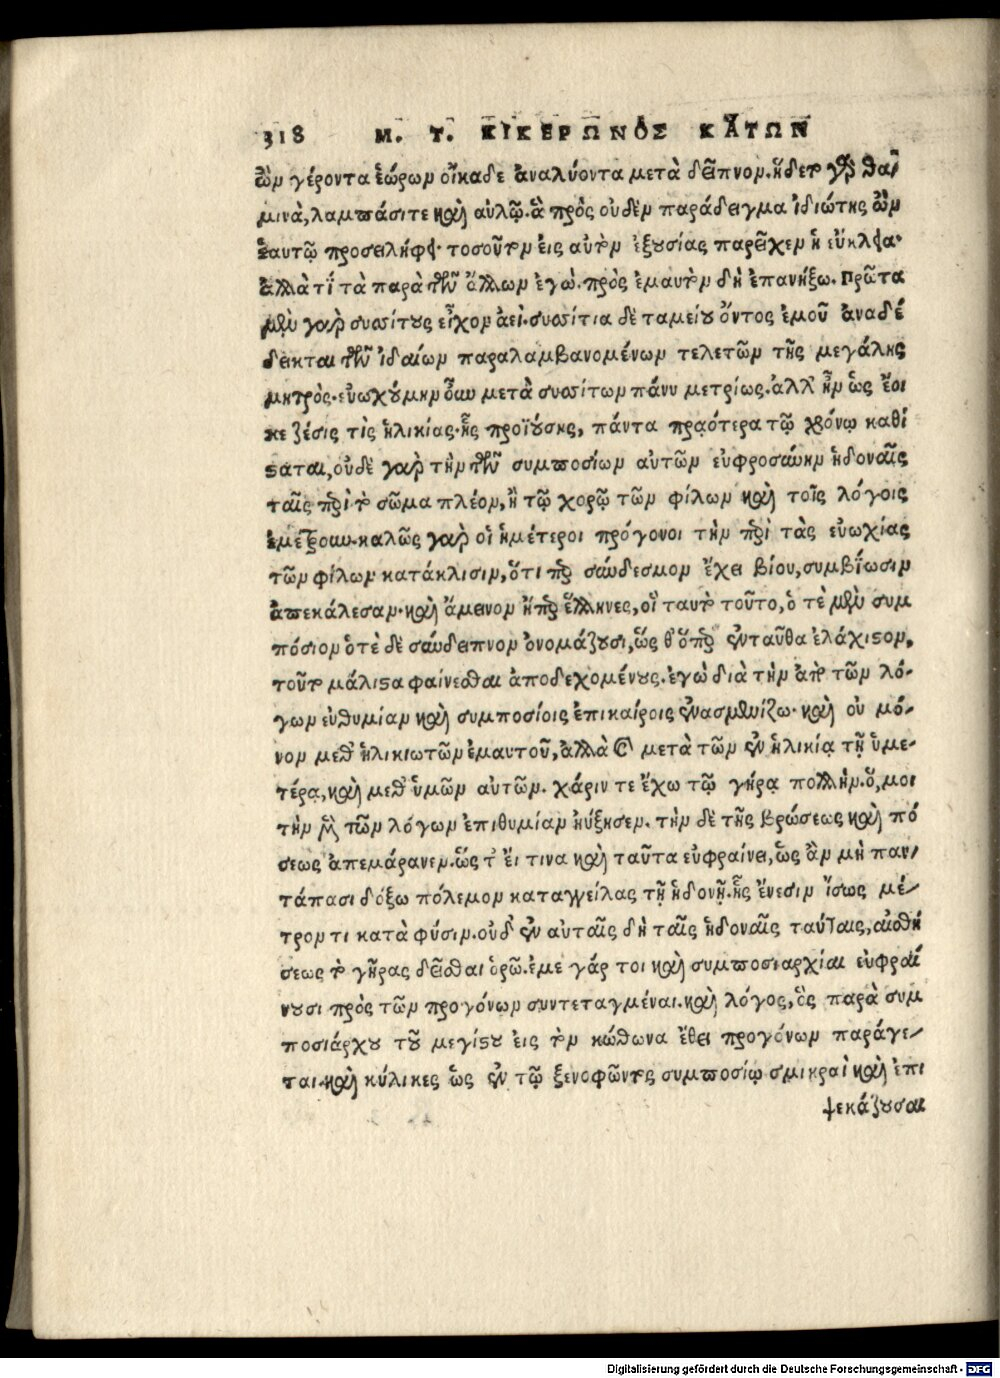 318 Μ. Τ. ΚΙΚΕΡΩΝΟΣ ΚΑΤΩΝ
ὢν γέροντα ἑώρων οἴκαδε ἀναλύοντα μετὰ δεῖπνον. ἥδετο γὰρ θα/
μινὰ, λαμπάσι τε καὶ αὐλῷ. ἃ πρὸς οὐδὲν παράδειγμα ἰδιώτης ὢν
ἑαυτῷ προσειλήφει· τοσοῦτον εἰς αὐτὸν ἐξουσίας παρεῖχεν ἡ εὔκλεια·
ἀλλὰ τί τὰ παρὰ τῶν ἄλλων ἐγώ. πρὸς ἐμαυτὸν δὴ ἐπανήξω. Πρῶτα
μὲν γὰρ συσσίτους εἶχον ἀεί· συσσίτια δὲ ταμείου ὄντος ἐμοῦ ἀναδέ
δεικται τῶν ἰδαίων παραλαμβανομένων τελετῶν τῆς μεγάλης
μητρός· εὐωχούμην οὖν μετὰ συσσίτων πάνυ μετρίως. ἀλλ' ἦν ὡς ἔοι
κε ζέσις τὶς ἡλικίας· ἧς προϊούσης, πάντα πραότερα τῷ χρόνῳ καθί
σαται, οὐδὲ γὰρ τὴν τῶν συμποσίων αὐτῶν εὐφροσύνην ἡδοναῖς
ταῖς περὶ τὸ σῶμα πλέον, ἢ τῷ χορῷ τῶν φίλων καὶ τοῖς λόγοις
ἐμέτρουν. καλῶς γὰρ οἱ ἡμέτεροι πρόγονοι τὴν περὶ τὰς εὐωχίας
τῶν φίλων κατάκλισιν, ὅτι περ σύνδεσμον ἔχει βίου, συμβίωσιν
ἀπεκάλεσαν· καὶ ἄμεινον ἤπερ ἕλληνες, οἳ ταυτὸ τοῦτο, ὁτὲ μὲν συμ
πόσιον ὁτὲ δὲ σύνδειπνον ὀνομάζουσι, ὥς θ' ὅπερ ἐνταῦθα ἐλάχιστον,
τοῦτο μάλιστα φαίνεσθαι ἀποδεχομένους. ἐγὼ διὰ τὴν ἀπὸ τῶν λό-
γων εὐθυμίαν καὶ συμποσίοις ἐπικαίροις ἐνασμενίζω· καὶ οὐ μό-
νον μεθ' ἡλικιωτῶν ἐμαυτοῦ, ἀλλὰ καὶ μετὰ τῶν ἐν ἡλικίᾳ τῇ ὑμε-
τέρᾳ, καὶ μεθ' ὑμῶν αὐτῶν. χάριν τε ἔχω τῷ γήρᾳ πολλήν. ὅ, μοι
τὴν μὲν τῶν λόγων ἐπιθυμίαν ηὔξησεν. τὴν δὲ τῆς βρώσεως καὶ πό
σεως ἀπεμάρανεν. ὥς τ' εἴ τινα καὶ ταῦτα εὐφραίνει, ὡς ἂν μὴ παν/
τάπασι δόξω πόλεμον καταγγείλας τῇ ἡδονῇ. ἧς ἔνεστιν ἴσως μέ/
τρον τι κατὰ φύσιν. οὐδ' ἐν αὐταῖς δὴ ταῖς ἡδοναῖς ταύταις, αἰσθή
σεως τὸ γῆρας δεῖσθαι ὁρῶ. ἐμὲ γάρ τοι καὶ συμποσιαρχίαι εὐφραί
νουσι πρὸς τῶν προγόνων συντεταγμέναι. καὶ λόγος, ὃς παρὰ συμ
ποσιάρχου τοῦ μεγίστου εἰς τὸν κώθωνα ἔθει προγόνων παράγε/
ται. καὶ κύλικες ὡς ἐν τῷ ξενοφῶντος συμποσίῳ σμικραὶ καὶ ἐπι
ψεκάζουσαι
Digitalisierung gefördert durch die Deutsche Forschungsgemeinschaft - DFG